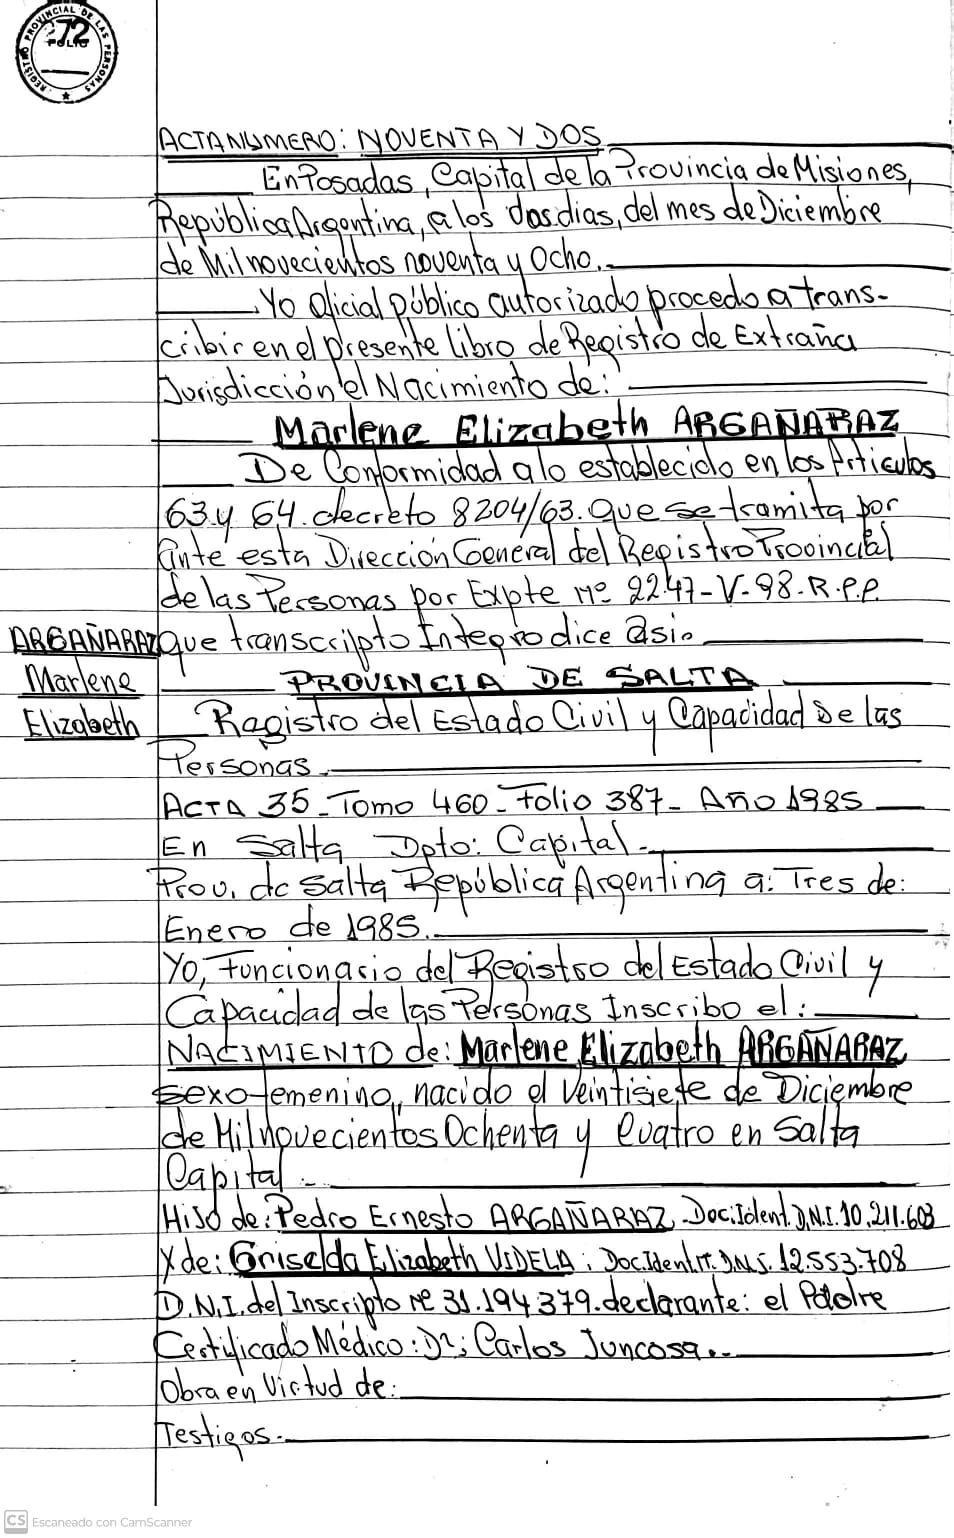 REGISTRO PROVINCIAL DE LAS PERSONAS
72
FOLIO
ACTA NUMERO: NOVENTA Y DOS
En Posadas, Capital de la Provincia de Misiones,
República Argentina, a los dos dias, del mes de Diciembre
de Mil novecientos noventa y Ocho.
Yo Oficial público autorizado procedo a trans-
cribir en el presente libro de Registro de Extraña
Jurisdicción el Nacimiento de:
Marlene Elizabeth ARGAÑARAZ
De Conformidad a lo establecido en los Articulos
63 y 64. decreto 8204/63. que se tramita por
ante esta Dirección General del Registro Provincial
de las Personas por Expte Nº 2247-V-98-R.P.P.
que transcripto Integro dice asi.
ARGAÑARAZ
Marlene
Elizabeth
PROVINCIA DE SALTA
Registro del Estado Civil y Capacidad De las
Personas.
ACTA 35 - Tomo 460 - Folio 387 - Año 1985
En Salta Dpto: Capital.-
Prov. de Salta República Argentina a: Tres de:
Enero de 1985.
Yo, Funcionario del Registro del Estado Civil y
Capacidad de las Personas Inscribo el:
NACIMIENTO de: Marlene Elizabeth ARGAÑARAZ
sexo femenino, nacido el Veintisiete de Diciembre
de Mil novecientos Ochenta y Cuatro en Salta
Capital.-
Hijo de: Pedro Ernesto ARGAÑARAZ. Doc. Ident. D.N.I. 10.211.603
Y de: Griselda Elizabeth VIDELA; Doc. Ident. D.N.I. 12.553.708
D.N.I. del Inscripto Nº 31.194379. declarante: el Padre
Certificado Médico: Dr; Carlos Juncosa..-
Obra en Virtud de:
Testigos.-
CS Escaneado con CamScanner